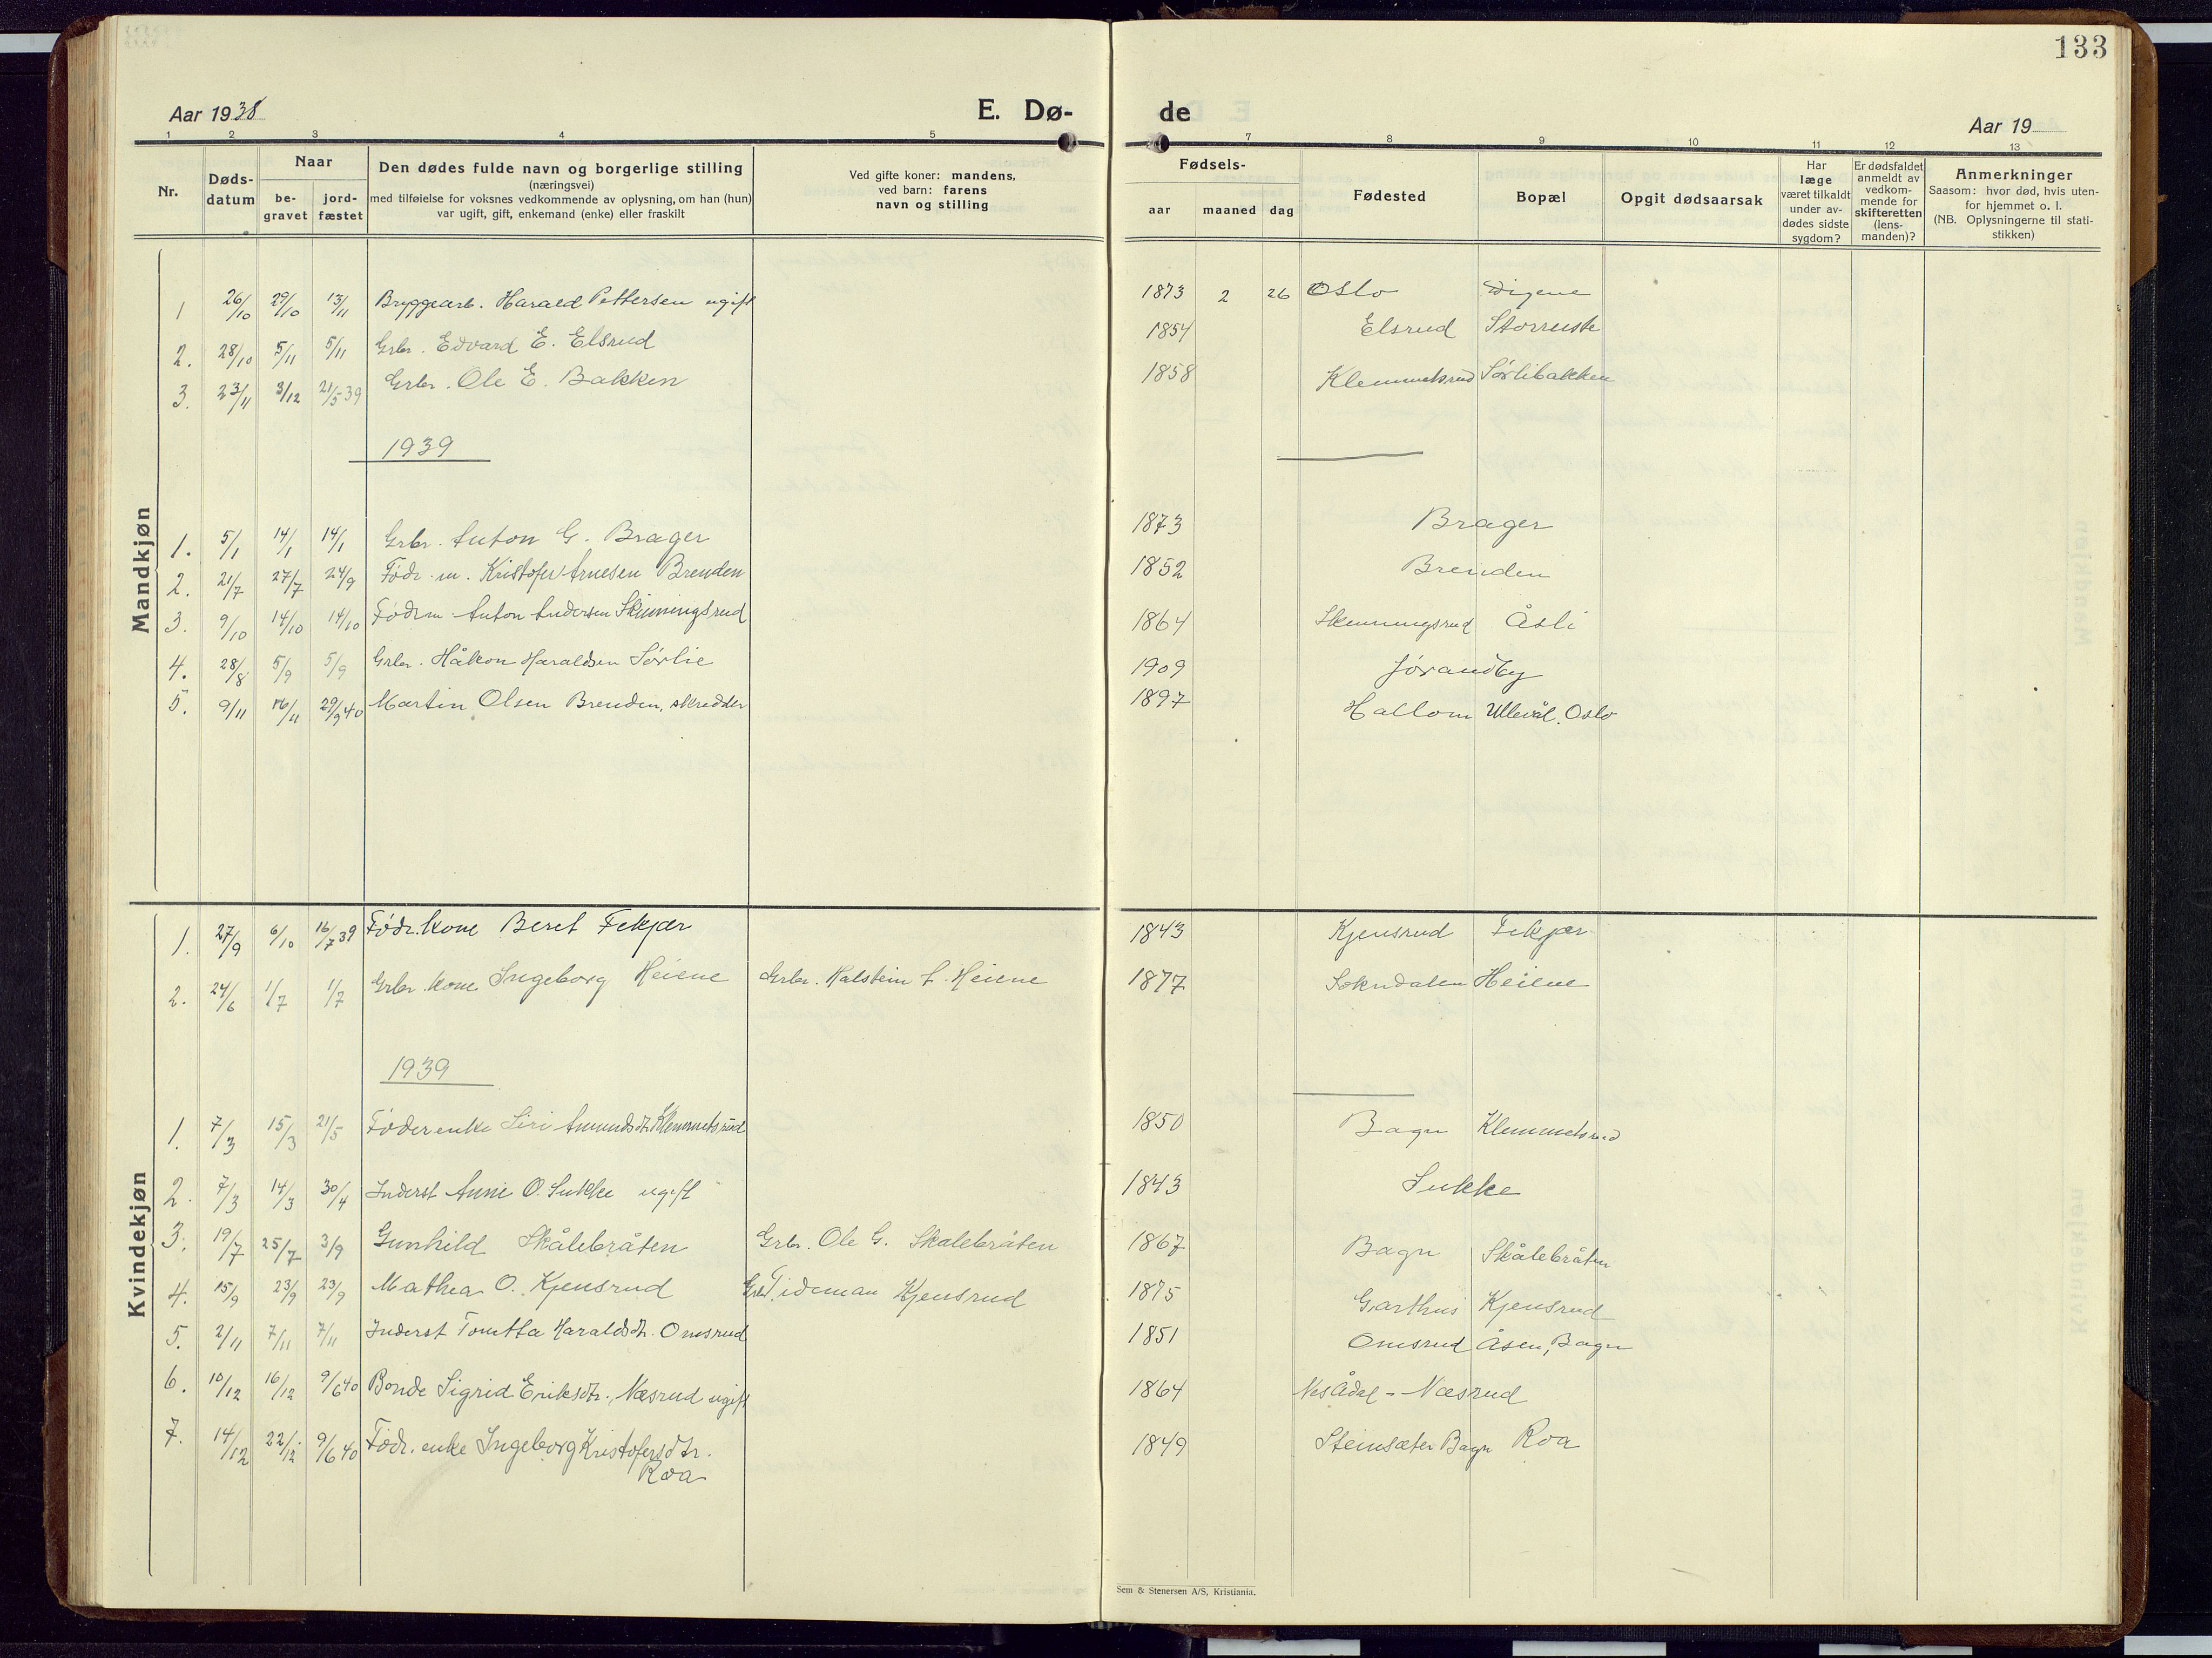 133
Aar 1938 E. Dø- de Aar 19
1 2 3 4 5 7 8 9 10 11 12 13
Nr. Døds-datum Naar be-gravet jord-fæstet Den dødes fulde navn og borgerlige stilling (næringsvei) med tilføielse for voksnes vedkommende av oplysning, om han (hun) var ugift, gift, enkemand (enke) eller fraskilt Ved gifte koner: mandens, ved barn: farens navn og stilling Fødsels- aar maaned dag Fødested Bopæl Opgit dødsaarsak Har læge været tilkaldt under av-dødes sidste sygdom? Er dødsfaldet anmeldt av vedkom-mende for skifteretten (lens-manden)? Anmerkninger Saasom: hvor død, hvis uten-for hjemmet o. l. (NB. Oplysningerne til stati-stikken)
Mandkjøn
1 26/10 29/10 13/11 Bryggearb. Harald Pettersen ugift 1873 2 26 Oslo Digene
2. 28/10 5/11 5/11 Grbr. Edvard E. Elsrud 1854 Elsrud Storruste
3. 23/11 3/12 21/5 39 Grbr. Ole E. Bakken 1858 Klemmetsrud Sørlibakken
1939
1. 5/1 14/1 14/1 Grbr. Anton G. Brager 1873 Brager
2. 21/7 27/7 24/9 Fødr. m. Kristofer Arnesen Brenden 1852 Brenden
3. 9/10 14/10 14/10 Fødr m. Anton Andersen Skinningsrud 1864 Skinningsrud Åsli
4. 28/8 5/9 5/9 Grbr. Håkon Haraldsen Sørlie 1909 Jørandby
5. 9/11 16/11 29/9 40 Martin Olsen Brenden, skredder 1897 Hallom Ullevål. Oslo
Kvindekjøn
1. 27/9 6/10 16/7 39 Fødr. kone Beret Fekjær 1843 Kjensrud Fekjær
2. 24/6 1/7 1/7 Grbr. kone Ingeborg Heiene Grbr. Halstein L. Heiene 1877 Sokndalen Heiene
1939
1. 7/3 15/3 21/5 Føderenke Siri Amundsdt. Klemmetsrud 1850 Bagn Klemmetsrud
2. 7/3 14/3 30/4 Inderst Anne O. Sukke ugift 1843 Sukke
3. 19/7 25/7 3/9 Gunhild Skålebråten Grbr. Ole G. Skalebråten 1867 Bagn Skålebråten
4. 15/9 23/9 23/9 Mathea O. Kjensrud Grbr. Tideman Kjensrud 1875 Garthus Kjensrud
5. 2/11 7/11 7/11 Inderst Tonetta Haraldsdt. Omsrud 1851 Omsrud Åsen, Bagn
6. 10/12 16/12 9/6 40 Bonde Sigrid Eriksdtr. Næsrud ugift 1864 Nes Ådal - Næsrud
7. 14/12 22/12 9/6 40 Fødr. enke Ingeborg Kristofersdtr. 1849 Steinsæter Bagn Roa
Roa
Sem & Stenersen A/S, Kristiania.